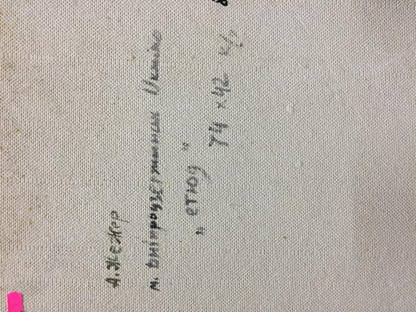 А. Жежер
м. Дніпродзержинськ Україна
"етюд"
74 × 42 х/о